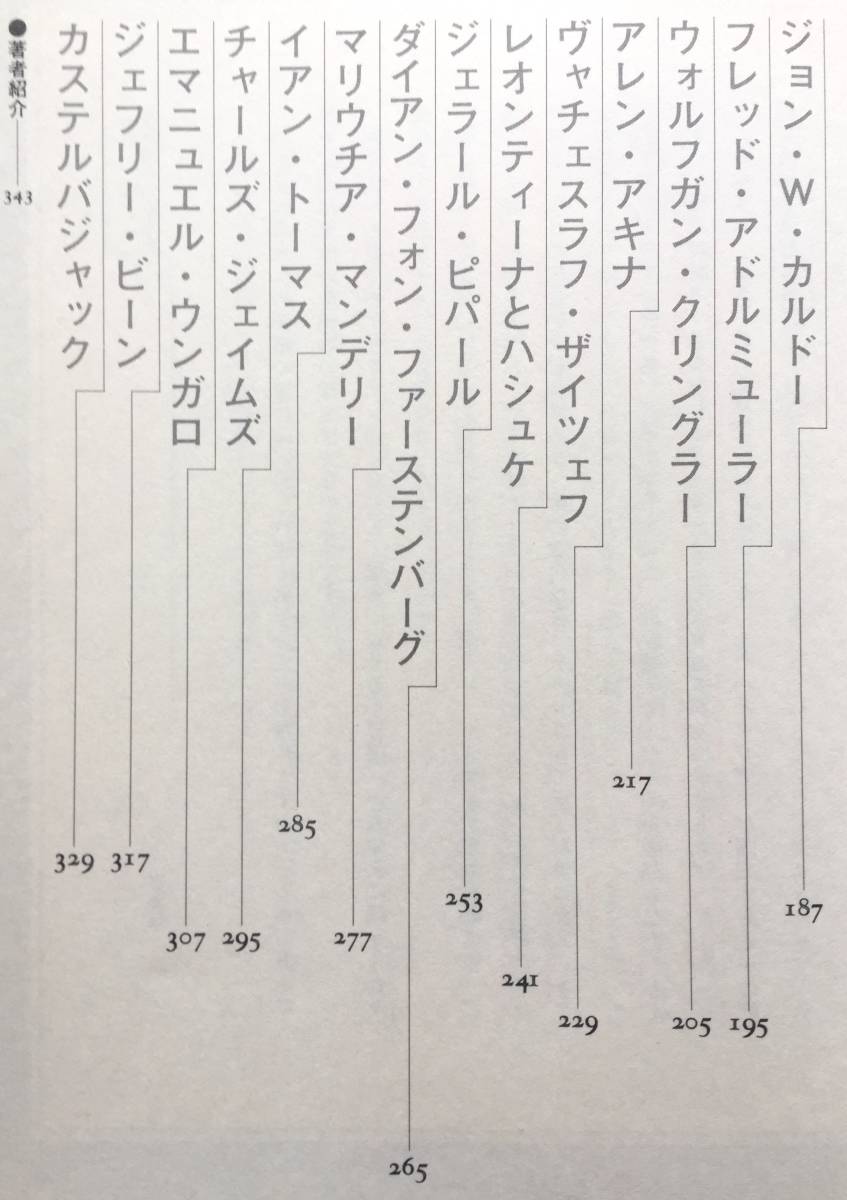 ジョン・W・カルドー 187
フレッド・アドルミューラー 195
ウォルフガン・クリングラー 205
アレン・アキナ 217
ヴャチェスラフ・ザイツェフ 229
レオンティーナとハシュケ 241
ジェラール・ピパール 253
ダイアン・フォン・ファーステンバーグ 265
マリウチア・マンデリー 277
イアン・トーマス 285
チャールズ・ジェイムズ 295
エマニュエル・ウンガロ 307
ジェフリー・ビーン 317
カステルバジャック 329
●著者紹介 343